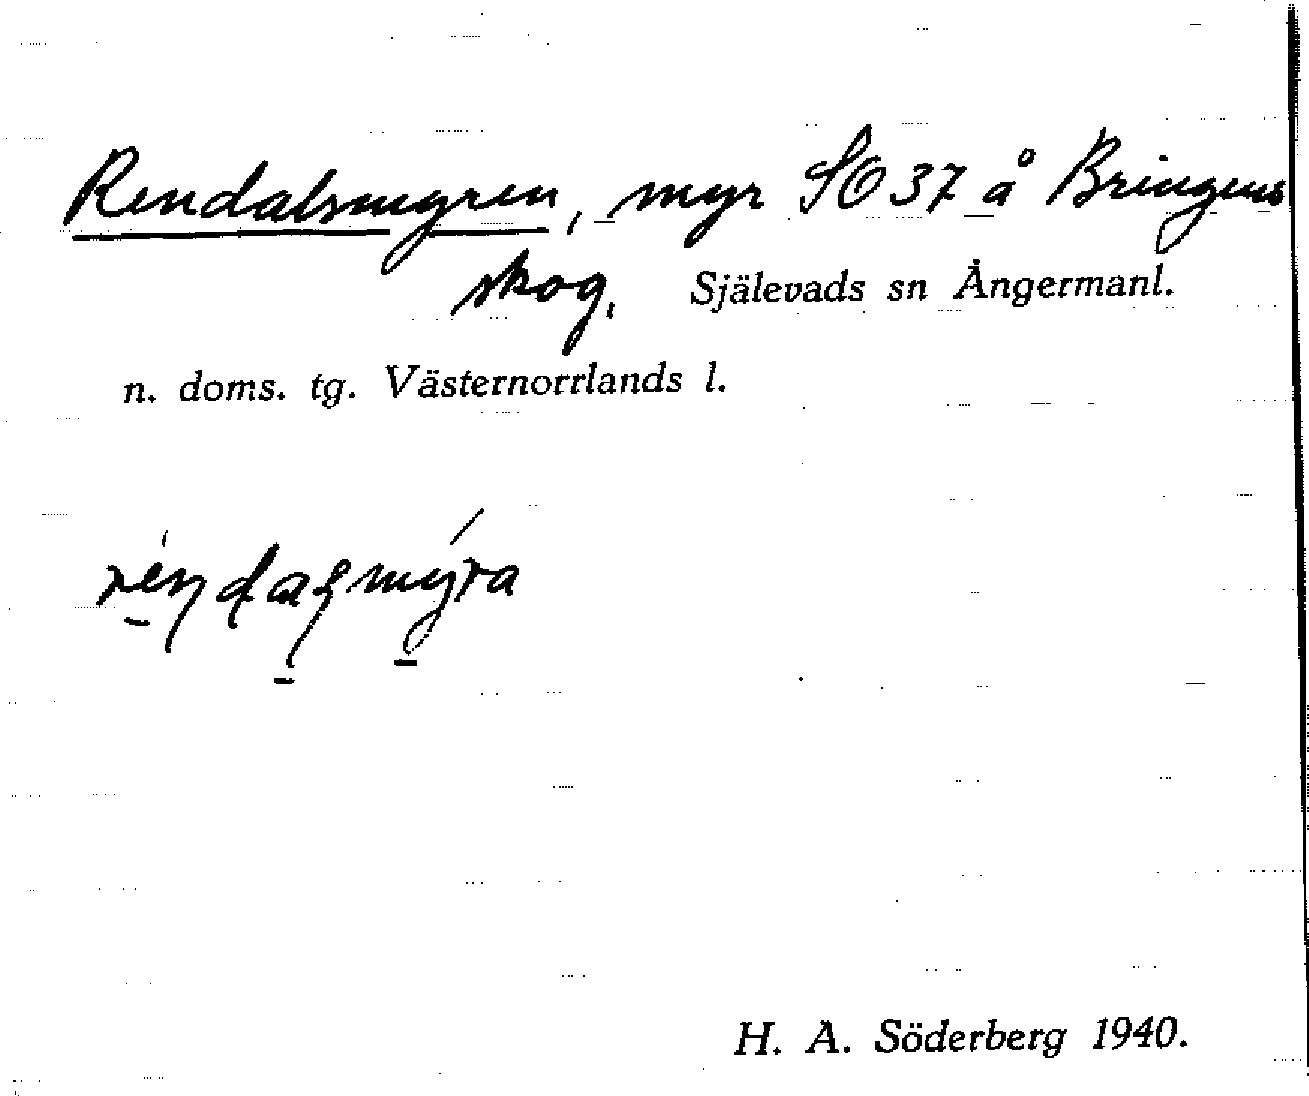 Rendalsmyren, myr SO 37 å Bringens
skog, Själevads sn Ångermanl.
n. doms. tg. Västernorrlands l.
H. A. Söderberg 1940.